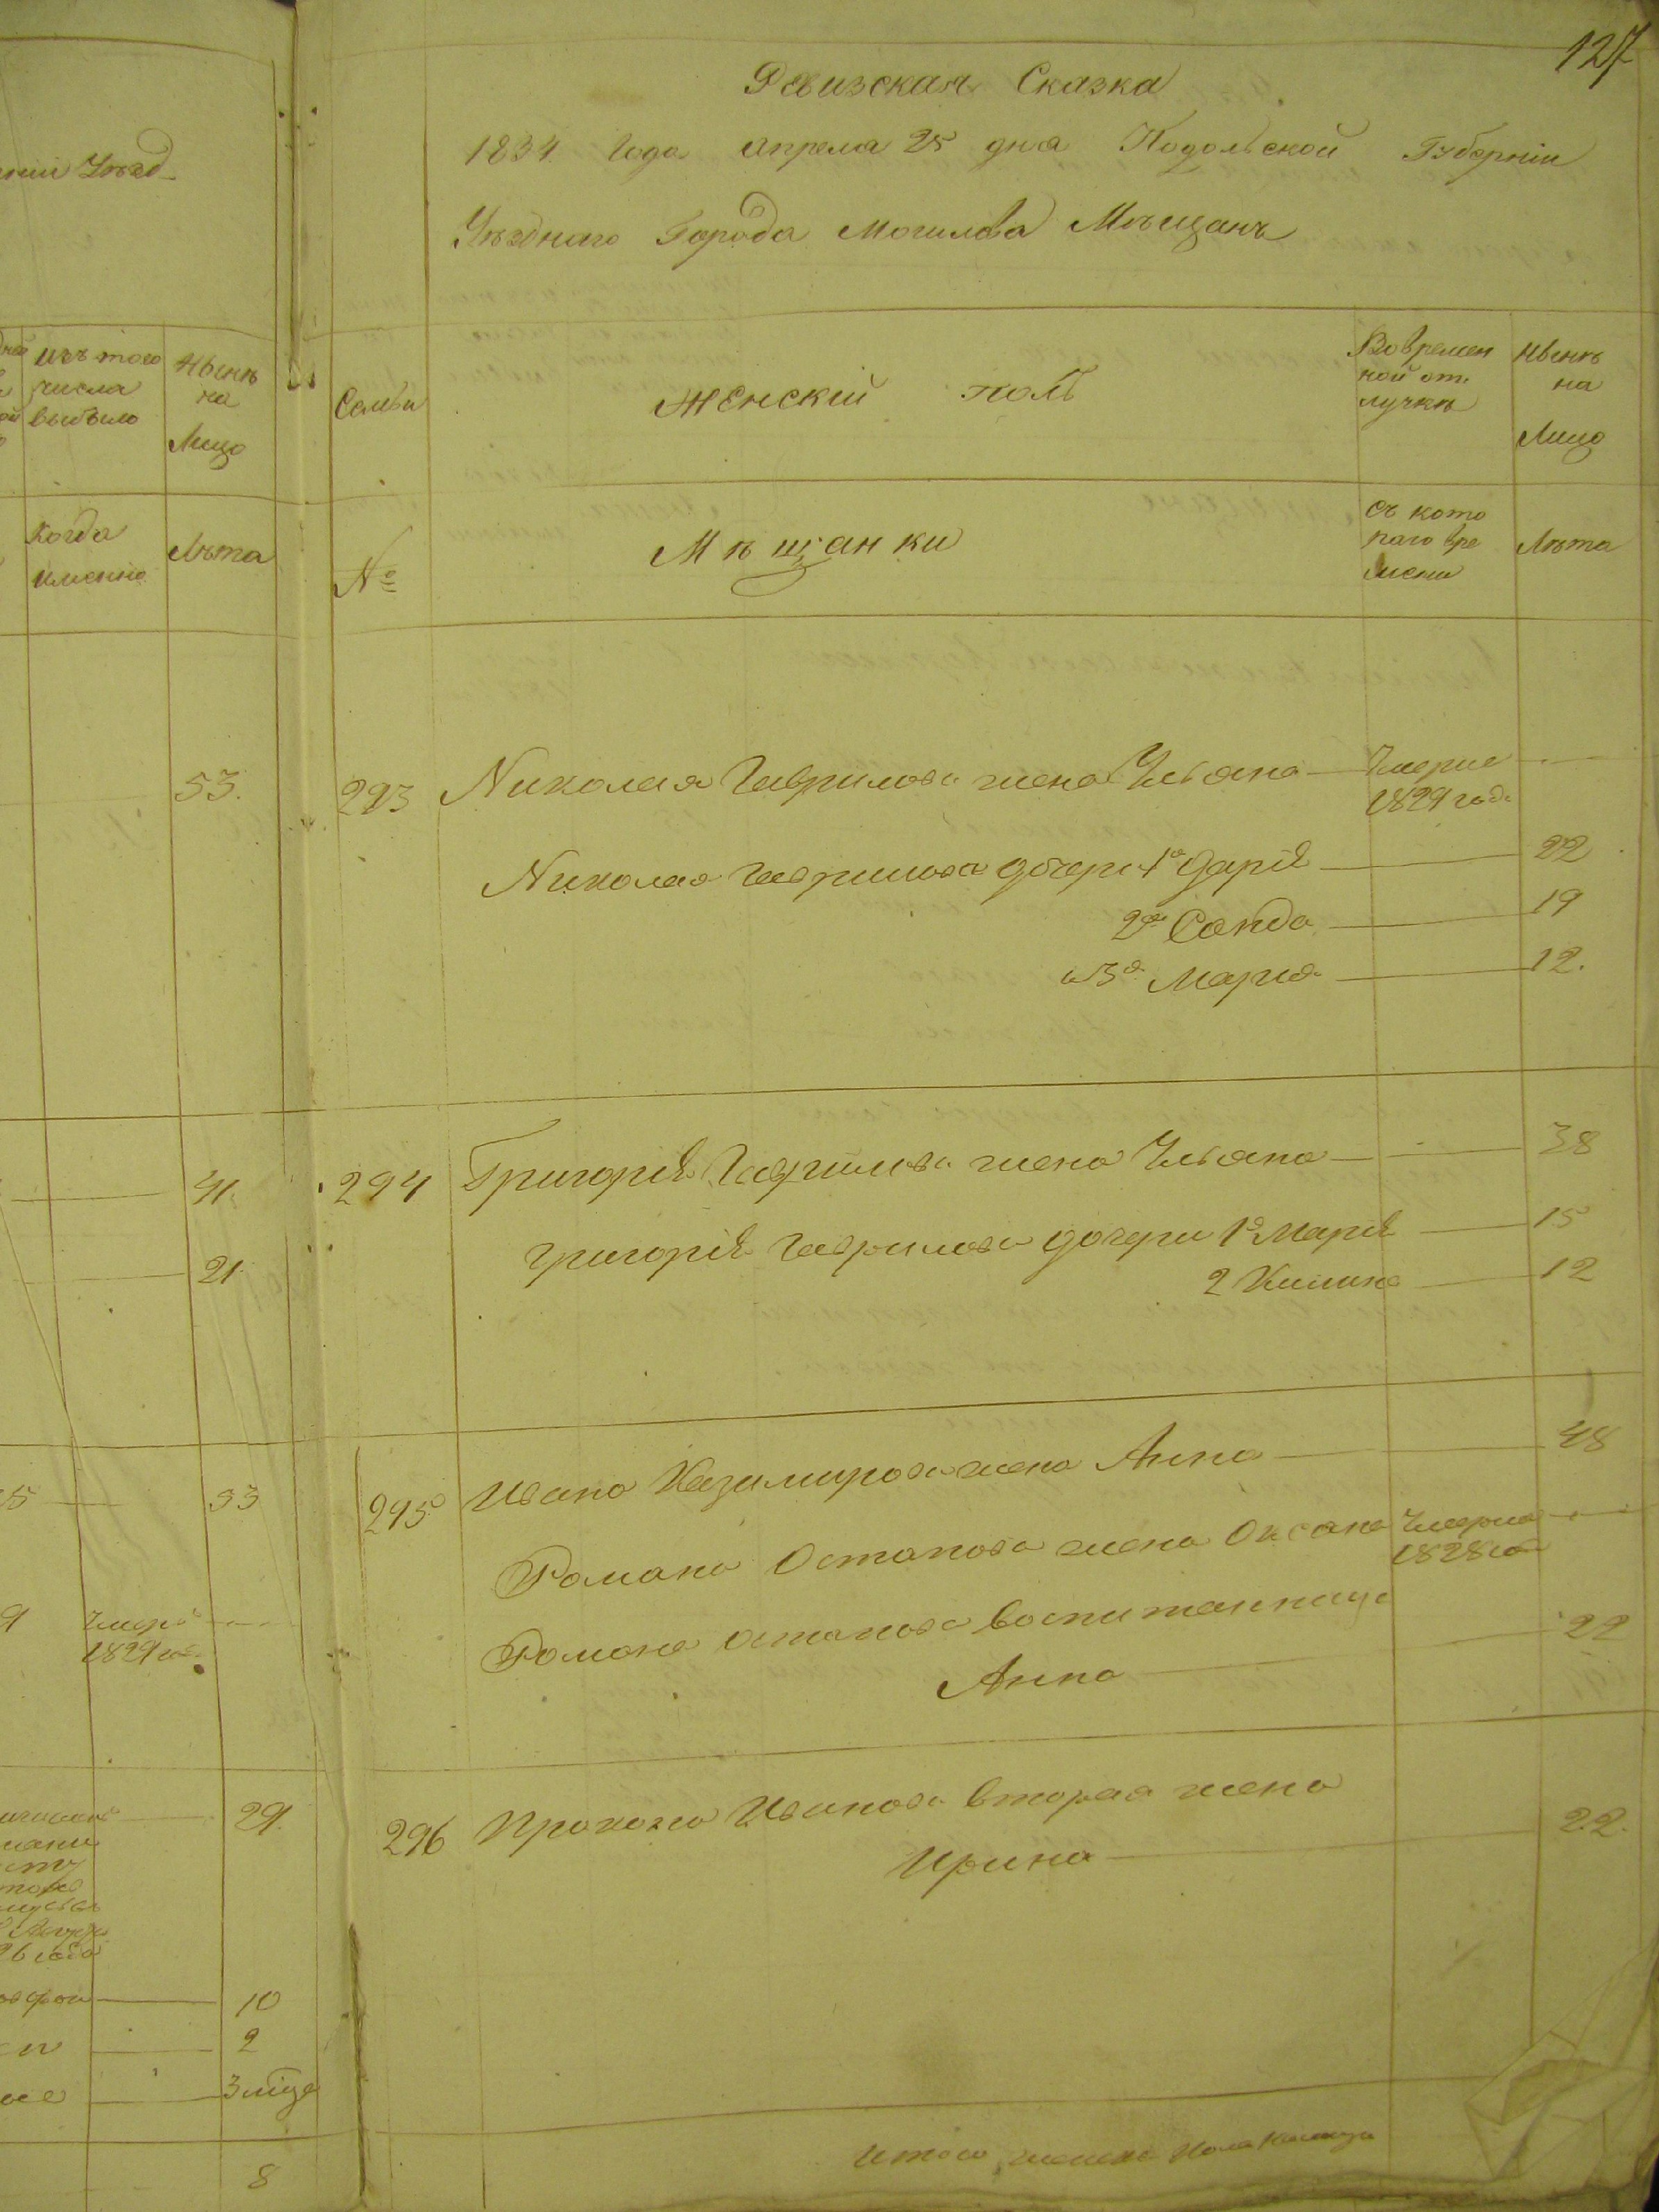 127
Ревизская Сказка
1834 Года апреля 25 дня Подольской Губерніи
Уѣзднаго Города Могилева Мѣщанъ
Семьи
женскій полъ
Во времен
ной от
лучкѣ
Нынѣ
на
Лицо
№
Мѣщанки
Съ кото
раго вре
мени
Лѣта
293 Николая Гаврилова жена Ульяна — Умерла —
1829 года
Николая Гаврилова дочери 1а Дарія — 22
2а Санда — 19
и 3а Мария — 12.
294 Григорія Гаврилова жена Ульяна — 38
Григорія Гаврилова дочери 1а Марія — 15
2 Килина — 12
295 Ивана Казимирова жена Анна — 48
Романа Остапова жена Оксана Умерла —
1828 го
Романа Остапова воспитанница
Анна — 22
296 Прокопа Иванова вторая жена
Ирина — 22.
Итого женска пола
Уѣзд
изъ того
числа
выбыло
Нынѣ
на
Лицо
Когда
именно
Лѣта
53.
41.
21.
33
Умеръ
1829 го
29.
10
2
3 мѣся
8